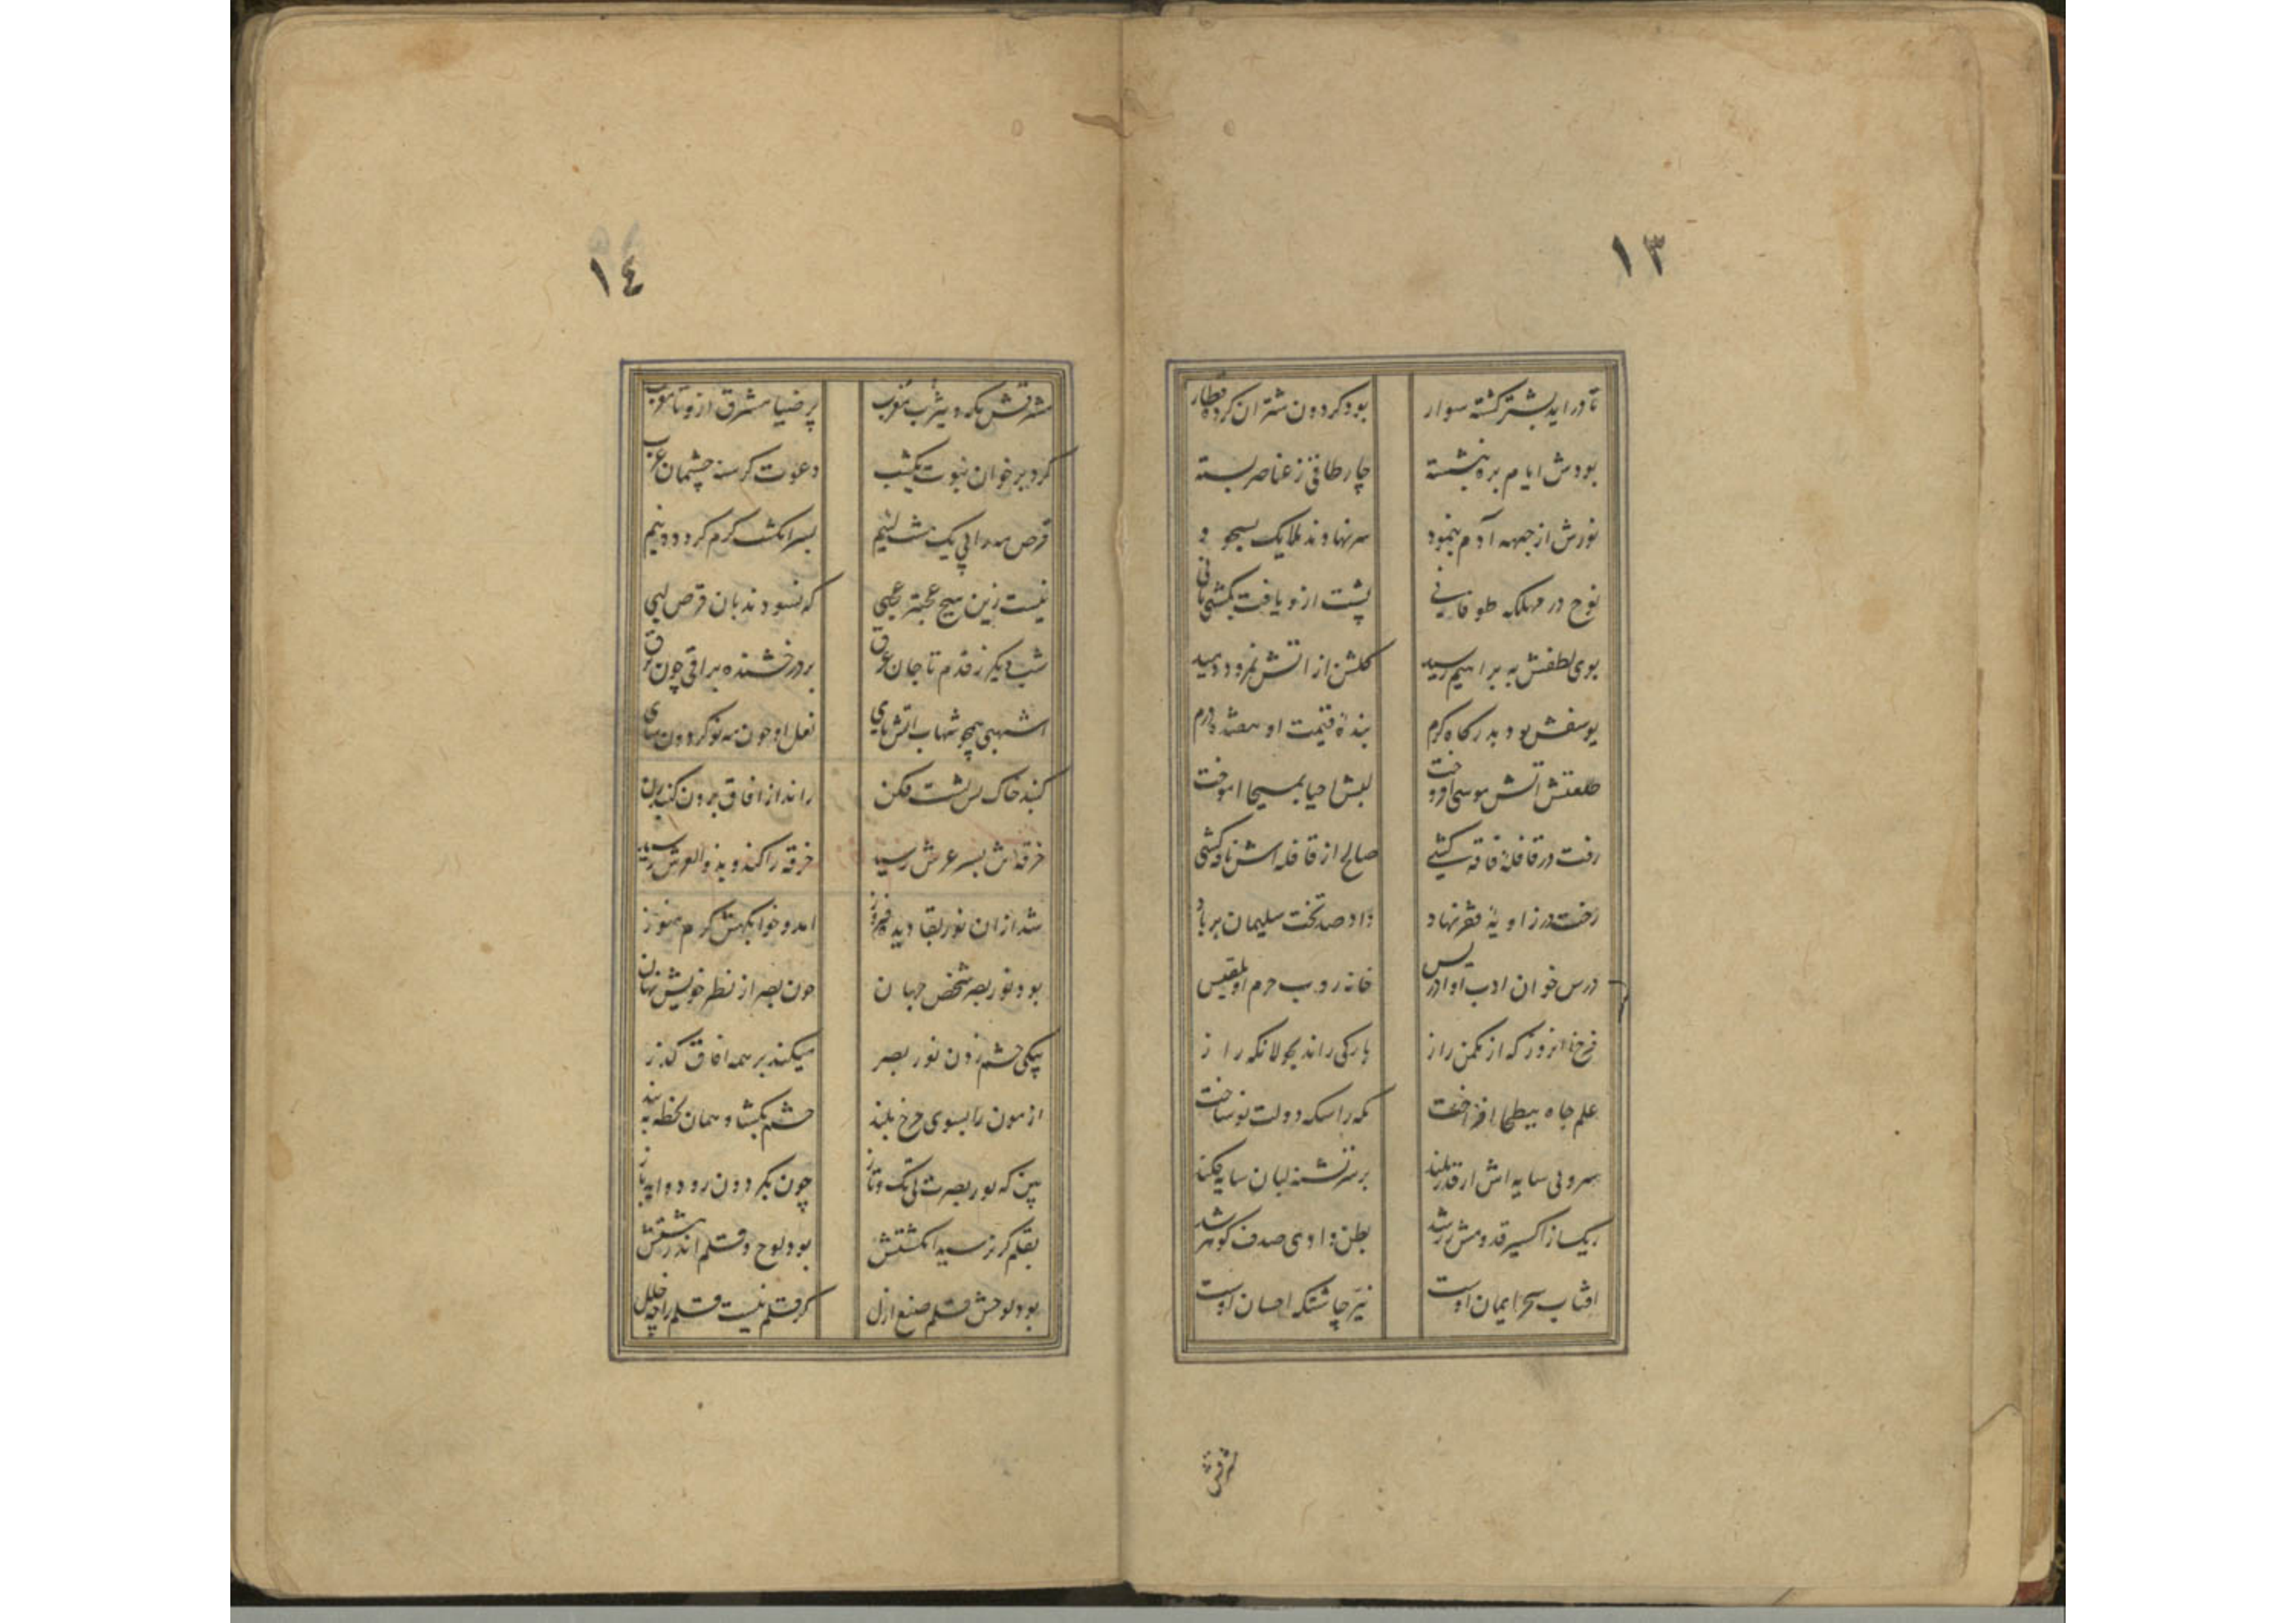 ١٣
تا در اید بشتر کشته سوار بود کردون شتران کرده قطار
بودش ایام بره بنشسته چار طاقی ز عناصر بسته
نورش از جبهه آدم بنمود سر نهادند ملایک بسجود
نوح در مهلکه طوفانی پشت ازو یافت بکشتی بانی
بوی لطفش به براهیم رسید کلشن از اتش نمرود دمید
یوسفش بود بدرکاه کرم بندهٔ قیمت او هفده درم
طلعتش اتش موسی افروخت لبش احیا بمسیحا اموخت
رفت در قافلهٔ فاقه کشی صالح از قافله اش ناقه کشی
رخت در زاویهٔ فقر نهاد داد صد تخت سلیمان بر باد
درس خوان ادب او ادریس خانه روب حرم او بلقیس
فرخ انروز که از مکمن راز بارکی راند بجولانکه راز
علم جاه ببطحا افراخت مکه را سکه دولت نو ساخت
سرو بی سایه اش از قدر بلند بر سر تشنه لبان سایه فکند
ریک از اکسیر قدومش زر شد بطن وادی صدف کوهر شد
افتاب سحر ایمان اوست نیر چاشتکه احسان اوست
١٤
مشرقش مکه و یثرب مغرب پر ضیا مشرق ازو تا مغرب
کرد بر خوان نبوت یکشب دعوت کرسنه چشمان عرب
قرص مه را پی یک مشت لئیم بسر انکشت کرم کرد دو نیم
نیست زین هیچ عجبتر عجبی که نسودند بان قرص لبی
شب دیکر ز قدم تا جان غرق بر درخشنده براقی چون برق
اشهبی همچو شهاب اتش پای نعل او چون مه نو کردون سای
کنبد خاک پس پشت فکن راند از افاق برون کنبد زن
خرقه اش بسر عرش رسید خرقه را کند و بذو العرش رسید
شد ازان نور بقا دیده فروز امد و خوابکهش کرم هنوز
بود نور بصر شخص جهان چون بصر از نظر خویش نهان
بیکی چشم زدن نور بصر میکند بر همه افاق کذر
ازمون را بسوی چرخ بلند چشم بکشا و همان لحظه ببند
بین که نور بصرت بی تک و تاز چون بکردون رود و اید باز
بقلم کر نرسید انکشتش بود لوح و قلم اندر مشتش
بود لوحش قلم صنع ازل کر قلم نیست قلم را چه خلل